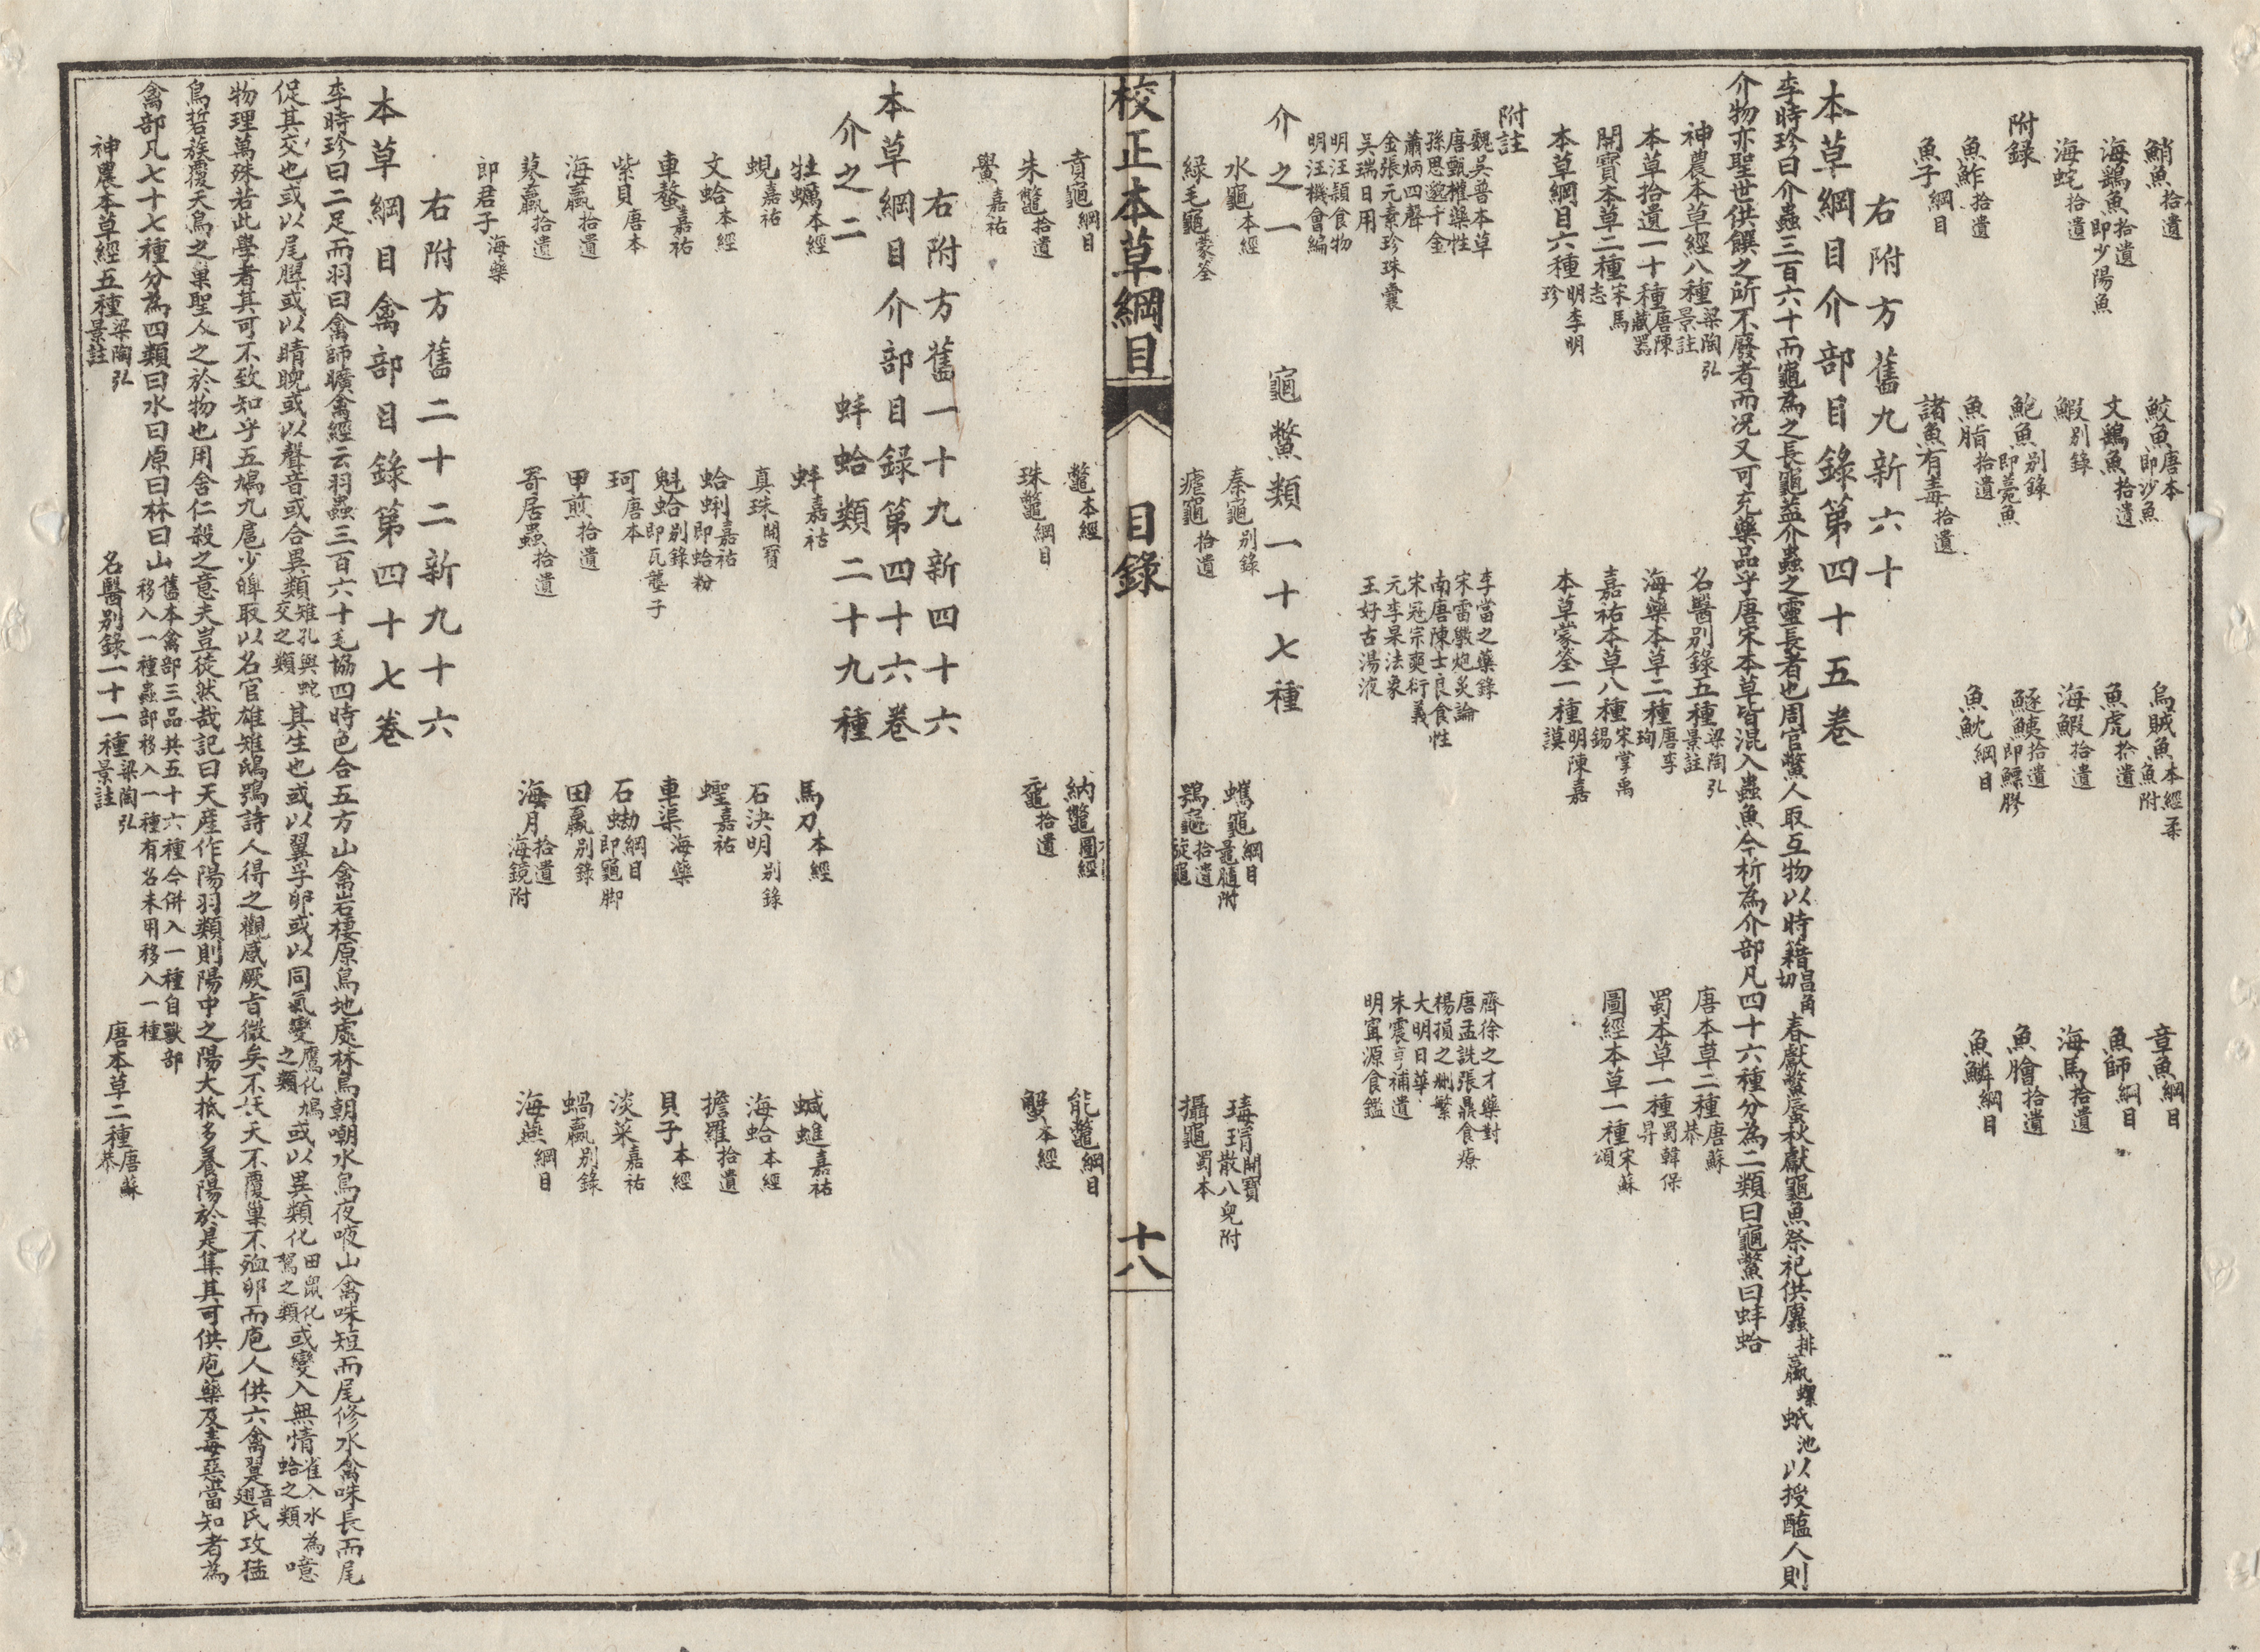 鮹魚拾遺　鮫魚唐本即沙魚　烏賊魚本經柔魚附　章魚綱目
海鷂魚拾遺即少陽魚　文鷂魚拾遺　魚虎拾遺　魚師綱目
海蛇拾遺　鰕別錄　海鰕拾遺　海馬拾遺
附録　鮑魚別錄即薧魚　鱁鮧拾遺即鰾膠　魚膾拾遺
魚鮓拾遺　魚脂拾遺　魚魫綱目　魚鱗綱目
魚子綱目　諸魚有毒拾遺
右附方舊九新六十
本草綱目介部目錄第四十五卷
李時珍曰介蟲三百六十而龜為之長龜蓋介蟲之靈長者也周官鱉人取互物以時籍昌角切春獻鱉蜃秋獻龜魚祭祀供䗯排蠃螺蚳池以授醢人則
介物亦聖世供饌之所不廢者而况又可充藥品乎唐宋本草皆混入蟲魚今析為介部凡四十六種分為二類曰龜鱉曰蚌蛤
神農本草經八種梁陶弘景註　名醫別錄五種梁陶弘景註　唐本草二種唐蘇恭
本草拾遺一十種唐陳藏器　海藥本草二種唐李珣　蜀本草一種蜀韓保昇
開寶本草二種宋馬志　嘉祐本草八種宋掌禹錫　圖經本草一種宋蘇頌
本草綱目六種明李明珍　本草蒙筌一種明陳嘉謨
附註
魏吳普本草　李當之藥錄　齊徐之才藥對
唐甄權藥性　宋雷斆炮炙論　唐孟詵張鼎食療
孫思邈千金　南唐陳士良食性　楊損之刪繁
蕭炳四聲　宋寇宗奭衍義　大明日華
金張元素珍珠囊　元李杲法象　朱震亨補遺
吳瑞日用　王好古湯液　明甯源食鑑
明汪頴食物
明汪機會編
介之一　龜鱉類一十七種
水龜本經　秦龜別錄　蠵龜綱目鼊䶰附　瑇瑁開寶撒八兒附
緑毛龜蒙筌　瘧龜拾遺　鶚龜拾遺旋龜　攝龜蜀本
校正本草綱目　目錄　十八
賁龜綱目　鱉本經　納鱉圖經　能鱉綱目
朱鱉拾遺　珠鱉綱目　黿拾遺　蟹本經
鱟嘉祐
右附方舊一十九新四十六
本草綱目介部目錄第四十六卷
介之二　蚌蛤類二十九種
牡蠣本經　蚌嘉祜　馬刀本經　蝛䗯嘉祐
蜆嘉祐　真珠開寶　石決明別錄　海蛤本經
文蛤本經　蛤蜊嘉祐即蛤粉　蟶嘉祐　擔羅拾遺
車螯嘉祐　魁蛤別錄即瓦壟子　車渠海藥　貝子本經
紫貝唐本　珂唐本　石蜐綱目即龜脚　淡菜嘉祐
海蠃拾遺　甲煎拾遺　田蠃別錄　蝸蠃別錄
蓼蠃拾遺　寄居蟲拾遺　海月拾遺海鏡附　海燕綱目
郎君子海藥
右附方舊二十二新九十六
本草綱目禽部目錄第四十七卷
李時珍曰二足而羽曰禽師曠禽經云羽蟲三百六十毛協四時色合五方山禽岩棲原鳥地處林鳥朝嘲水鳥夜㖡山禽咮短而尾修水禽咮長而尾
促其交也或以尾臎或以睛睨或以聲音或合異類雉孔與蛇交之類其生也或以翼孚卵或以同氣變鷹化鳩之類或以異類化田鼠化鴽之類或變入無情雀入水為蛤之類噫
物理萬殊若此學者其可不致知乎五鳩九扈少皞取以名官雄雉鴟鴞詩人得之觀感厥旨微矣不妖夭不覆巢不殈卵而庖人供六禽翨音翅氏攻猛
鳥硩族覆夭鳥之巢聖人之於物也用舍仁殺之意夫豈徒然哉記曰天產作陽羽類則陽中之陽大抵多養陽於是集其可供庖藥及毒惡當知者為
禽部凡七十七種分為四類曰水曰原曰林曰山舊本禽部三品共五十六種今併入一種自獸部移入一種蟲部移入一種有名未用移入一種
神農本草經五種梁陶弘景註　名醫別錄一十一種梁陶弘景註　唐本草二種唐蘇恭